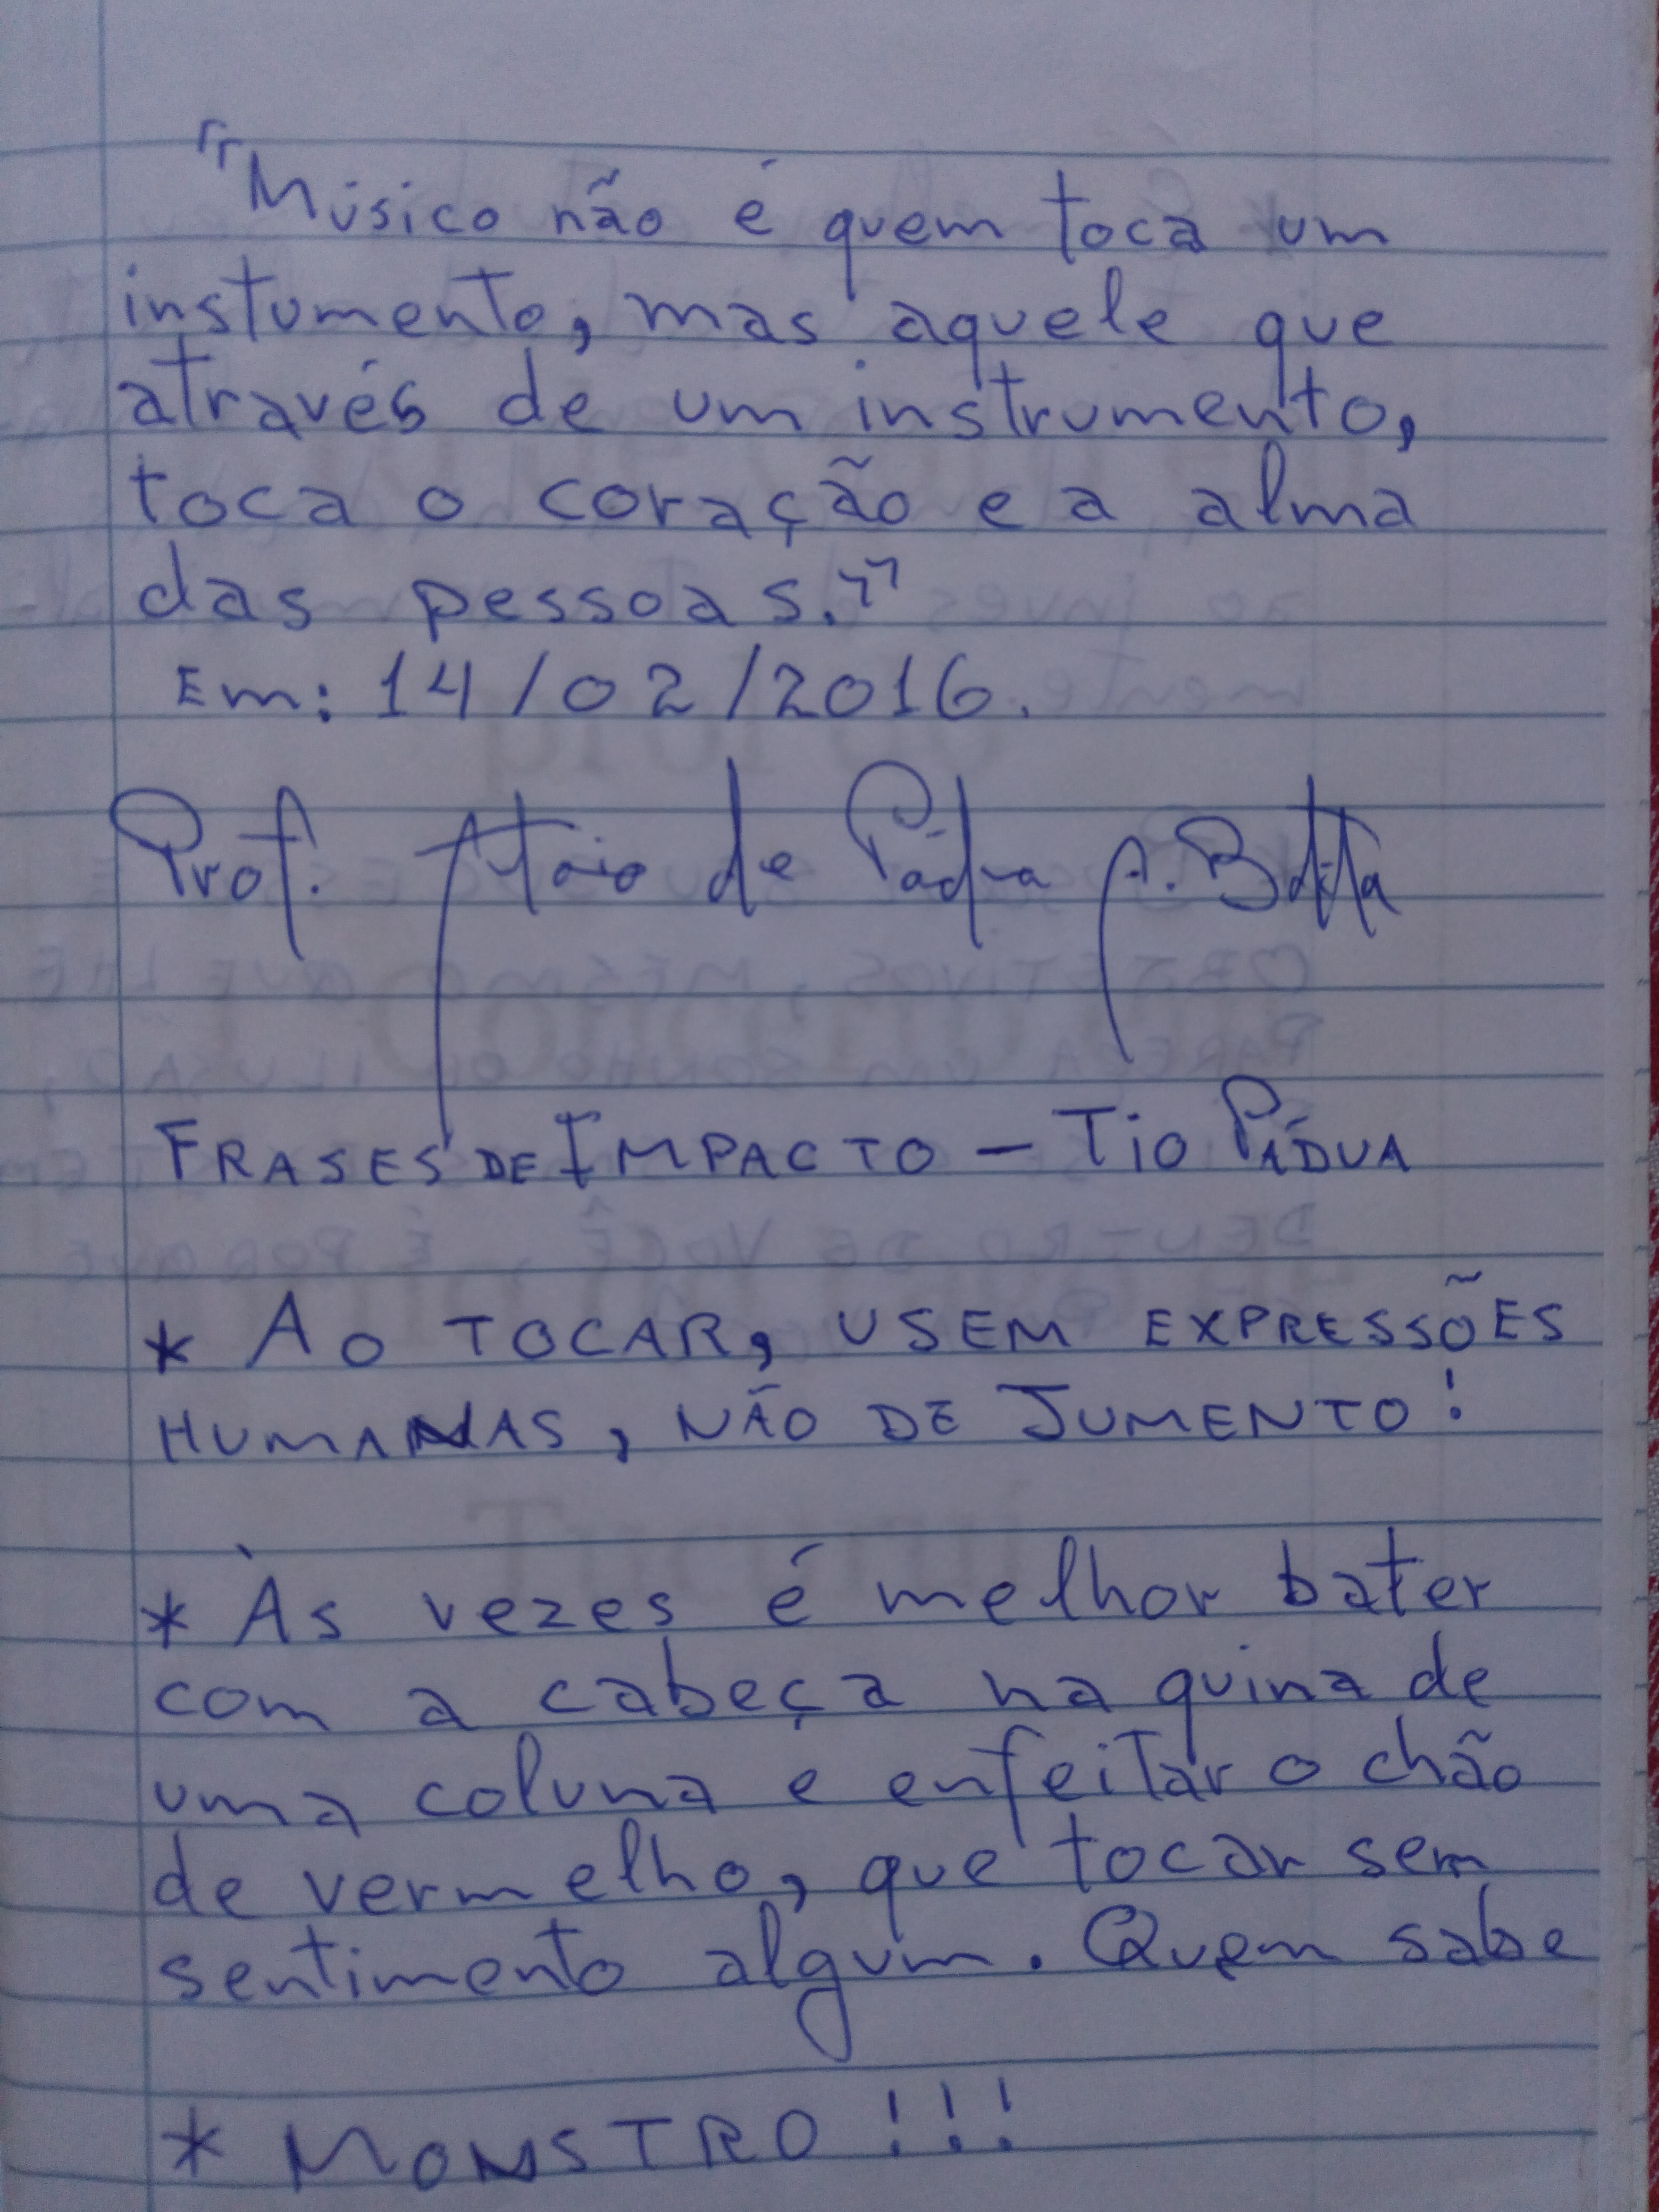 "Músico não é quem toca um
instumento, mas aquele que
através de um instrumento,
toca o coração e a alma
das pessoas."
Em: 14/02/2016.
Prof. de Pádua A.
FRASES DE IMPACTO - TIO PÁDUA
* AO TOCAR, USEM EXPRESSÕES
HUMANAS, NÃO DE JUMENTO!
* Às vezes é melhor bater
com a cabeça na quina de
uma coluna e enfeitar o chão
de vermelho, que tocar sem
sentimento algum. Quem sabe
* MONSTRO!!!